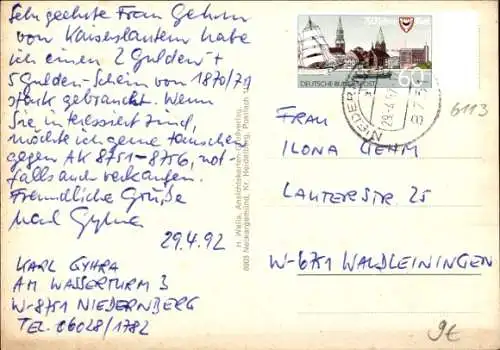 Sehr geehrte Frau Gehm
von Kaiserslautern habe
ich einen 2 Gulden +
5 Gulden-Schein von 1870/71
stark gebraucht. Wenn
Sie interessiert sind,
möchte ich gerne tauschen
gegen AK 8751-8756, not-
falls auch verkaufen.
Freundliche Grüße
Karl Gyhra
29.4.92
KARL GYHRA
AM WASSERTURM 3
W-8751 NIEDERNBERG
TEL. 06028/1782
H. Wella, Ansichtskarten-
6903 Neckargemünd, Kr. Heidelberg, Postfach
DEUTSCHE BUNDESPOST
60
29.4.92
8751
6113
FRAU
ILONA GEHM
LAUTERSTR. 25
W-6751 WALDLEININGEN
9€